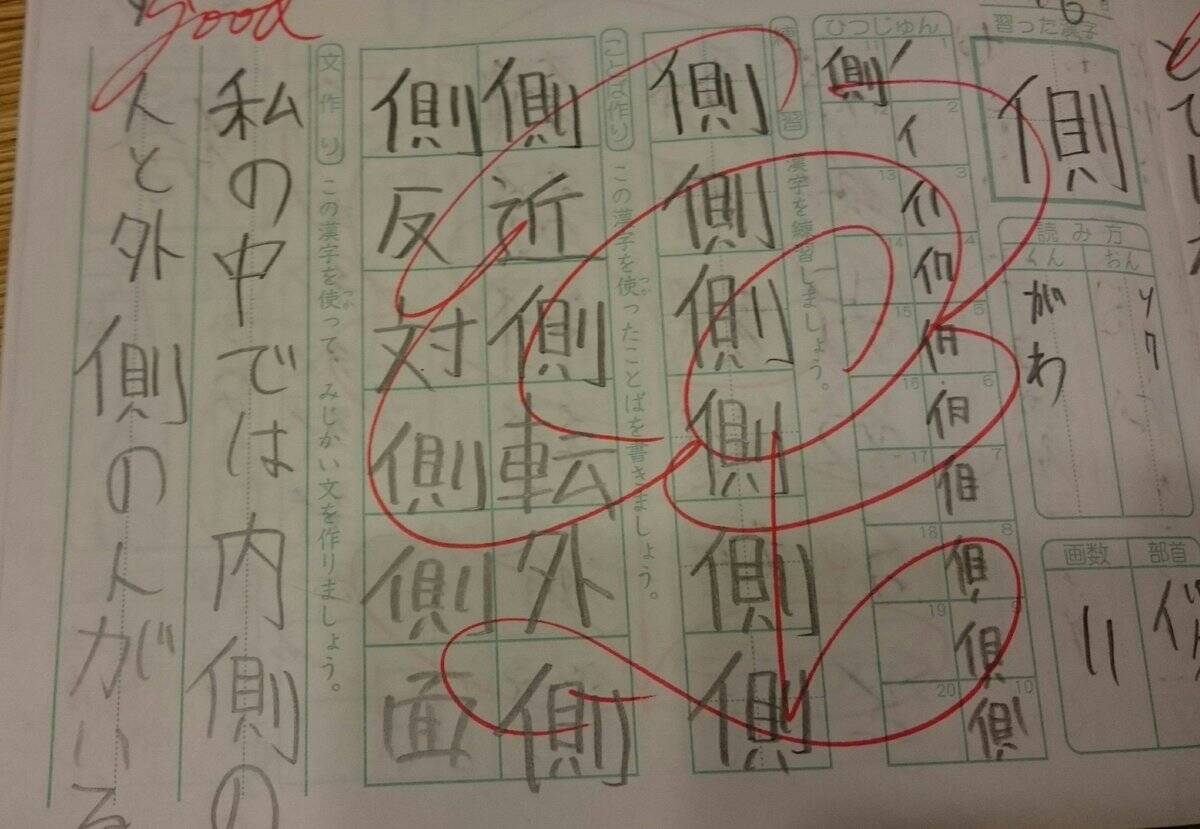 習った漢字
側
読み方
おん
ソク
くん
がわ
部首
画数
11
ひつじゅん
1
2
3
4
5
6
7
8
9
10
11
12
13
14
15
16
17
18
19
20
側
練習
漢字を練習しましょう。
側側側側側側
ことば作り
この漢字を使ったことばを書きましょう。
側近側転外側
側反対側側面
文作り
この漢字を使って、みじかい文を作りましょう。
私の中では内側の
人と外側の人がいる
good